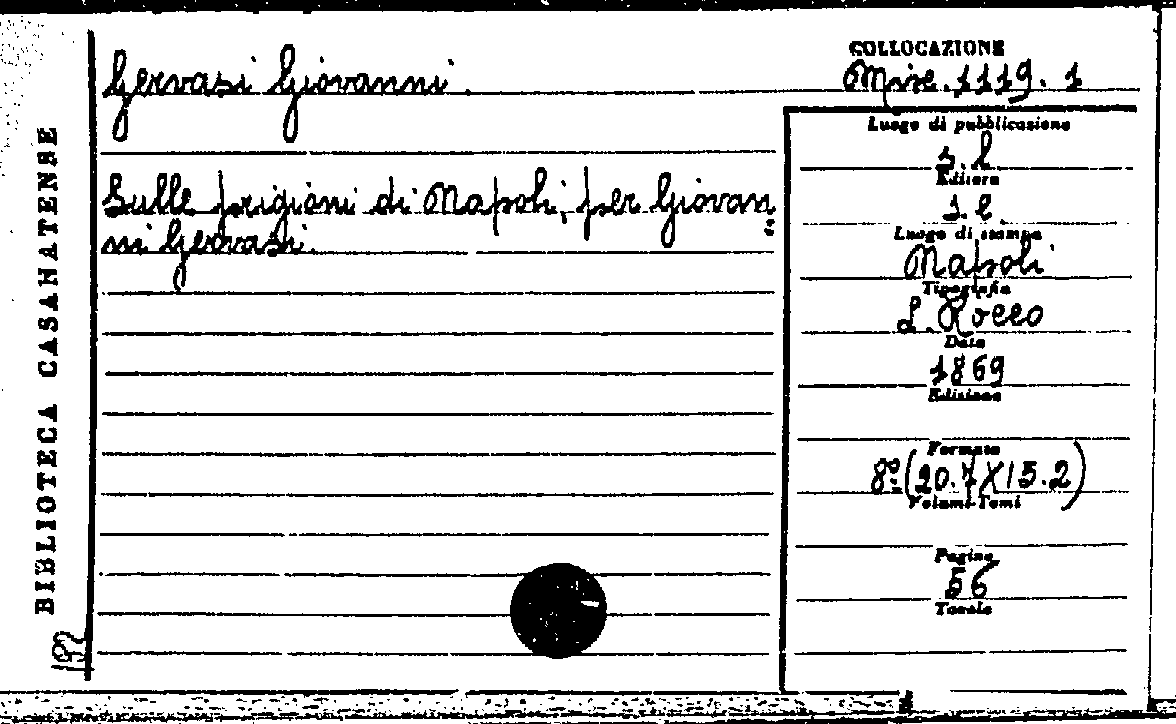 Gervasi Giovanni.
Sulle prigioni di Napoli, per Giovan
ni Gervasi.
COLLOCAZIONE
Misc. 1119. 1
Luogo di pubblicazione
s. l.
Editore
s. e.
Luogo di stampa
Napoli
Tipografia
L. Rocco
Data
1869
Edizione
Formato
8º (20.7X15.2)
Volumi-Tomi
Pagine
56
Tavole
BIBLIOTECA CASANATENSE